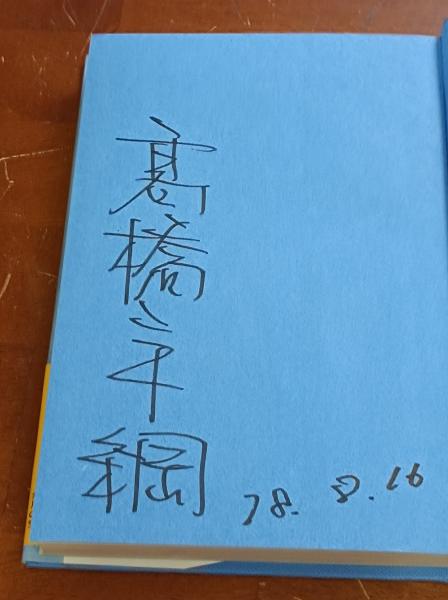 髙橋三千綱
78. 8. 16